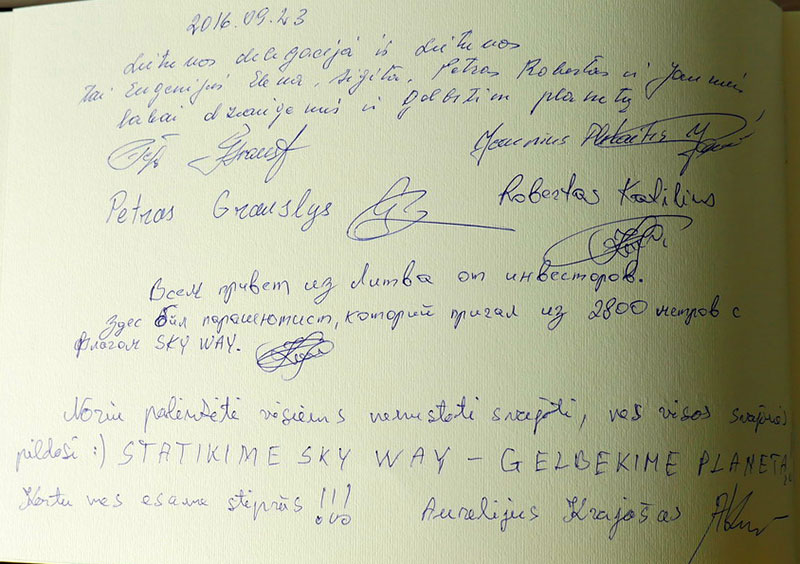 2016.09.23
Lietuvos delegacija iš Lietuvos
Tai Eugenijus Elena, Sigita, Petras Robertas ir Jaunius
labai džiaugiamės ir gelbėtim planetą
Jaunius
Petras Grauslys
Robertas Kalilius
Всем привет из Литва от инвесторов.
Здес был парашютист, который пригал из 2800 метров с
флагом SKY WAY.
Noriu palinkėti visiems nenustoti svajoti, nes visos svajonės
pildosi :) STATIKIME SKY WAY – GELBĖKIME PLANETĄ
Kartu mes esame stiprūs !!!
Aurelijus Krajašas